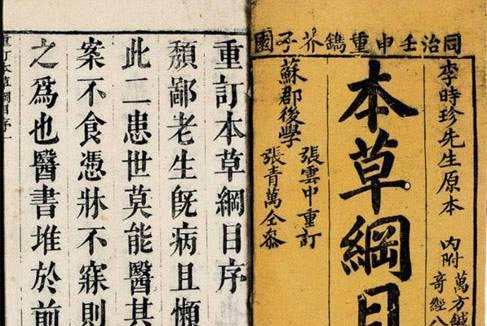 同治壬申重鐫芥子園
李時珍先生原本
內附
萬方鍼
奇經八
本草綱目
蘇郡後學
張雲中重訂
張青萬仝參
重訂本草綱目序
頹鄙老生旣病且懶
此二患世莫能醫其
案不食憑牀不寐則
之爲也醫書堆於前
重訂本草綱目序